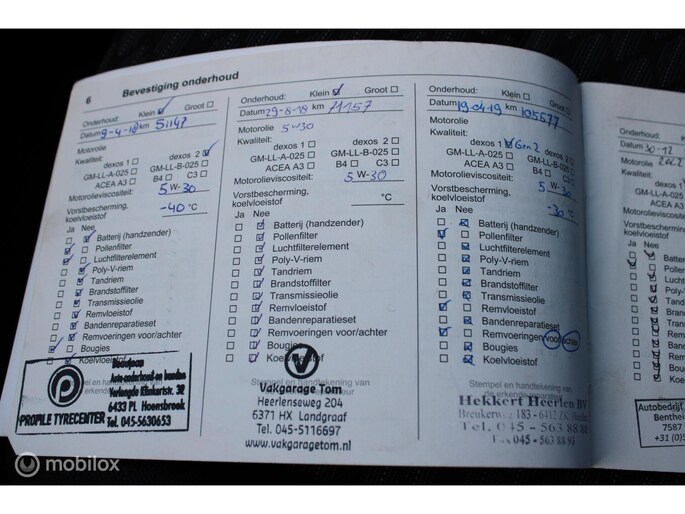 6 Bevestiging onderhoud
Onderhoud: Klein Groot
Datum 9-4-18 km 51147
Motorolie
Kwaliteit: dexos 1 dexos 2
GM-LL-A-025 GM-LL-B-025
ACEA A3 B4 C3
Motorolieviscositeit: 5 W-30
Vorstbescherming,
koelvloeistof -40 °C
Ja Nee
Batterij (handzender)
Pollenfilter
Luchtfilterelement
Poly-V-riem
Tandriem
Brandstoffilter
Transmissieolie
Remvloeistof
Bandenreparatieset
Remvoeringen voor/achter
Bougies
Koelvloeistof
Auto-onderhoud-en banden
6433 PL Hoensbroek
Tel. 045-5630653
PROFILE TYRECENTER
Onderhoud: Klein Groot
Datum 29-8-18 km 71157
Motorolie 5W30
Kwaliteit: dexos 1 dexos 2
GM-LL-A-025 GM-LL-B-025
ACEA A3 B4 C3
Motorolieviscositeit: 5 W-30
Vorstbescherming,
koelvloeistof °C
Ja Nee
Batterij (handzender)
Pollenfilter
Luchtfilterelement
Poly-V-riem
Tandriem
Brandstoffilter
Transmissieolie
Remvloeistof
Bandenreparatieset
Remvoeringen voor/achter
Bougies
Koelvloeistof
Stempel en handtekening van
Vakgarage Tom
Heerlenseweg 204
6371 HX Landgraaf
Tel. 045-5116697
www.vakgaragetom.nl
Onderhoud: Klein Groot
Datum 19-04-19 km 105577
Motorolie
Kwaliteit: dexos 1 Gen 2 dexos 2
GM-LL-A-025 GM-LL-B-025
ACEA A3 B4 C3
Motorolieviscositeit: 5 W-30
Vorstbescherming,
koelvloeistof -30 °C
Ja Nee
Batterij (handzender)
Pollenfilter
Luchtfilterelement
Poly-V-riem
Tandriem
Brandstoffilter
Transmissieolie
Remvloeistof
Bandenreparatieset
Remvoeringen voor/achter
Bougies
Koelvloeistof
Stempel en handtekening van
Hekkert Heerlen BV
Tel. 045 - 563 88 88
045 - 563 88 93
Onderhoud:
Datum 30-12
Motorolie
Kwaliteit:
GM-LL-A
ACE
Motorolieviscos
Vorstbescherm
koelvloeistof
Ja Nee
Batter
Pollen
Luch
Poly
Tan
Bra
Tra
Re
Ba
Re
Bo
Ko
Autobedrijf
Benthe
7587
+31 (0)5
mobilox